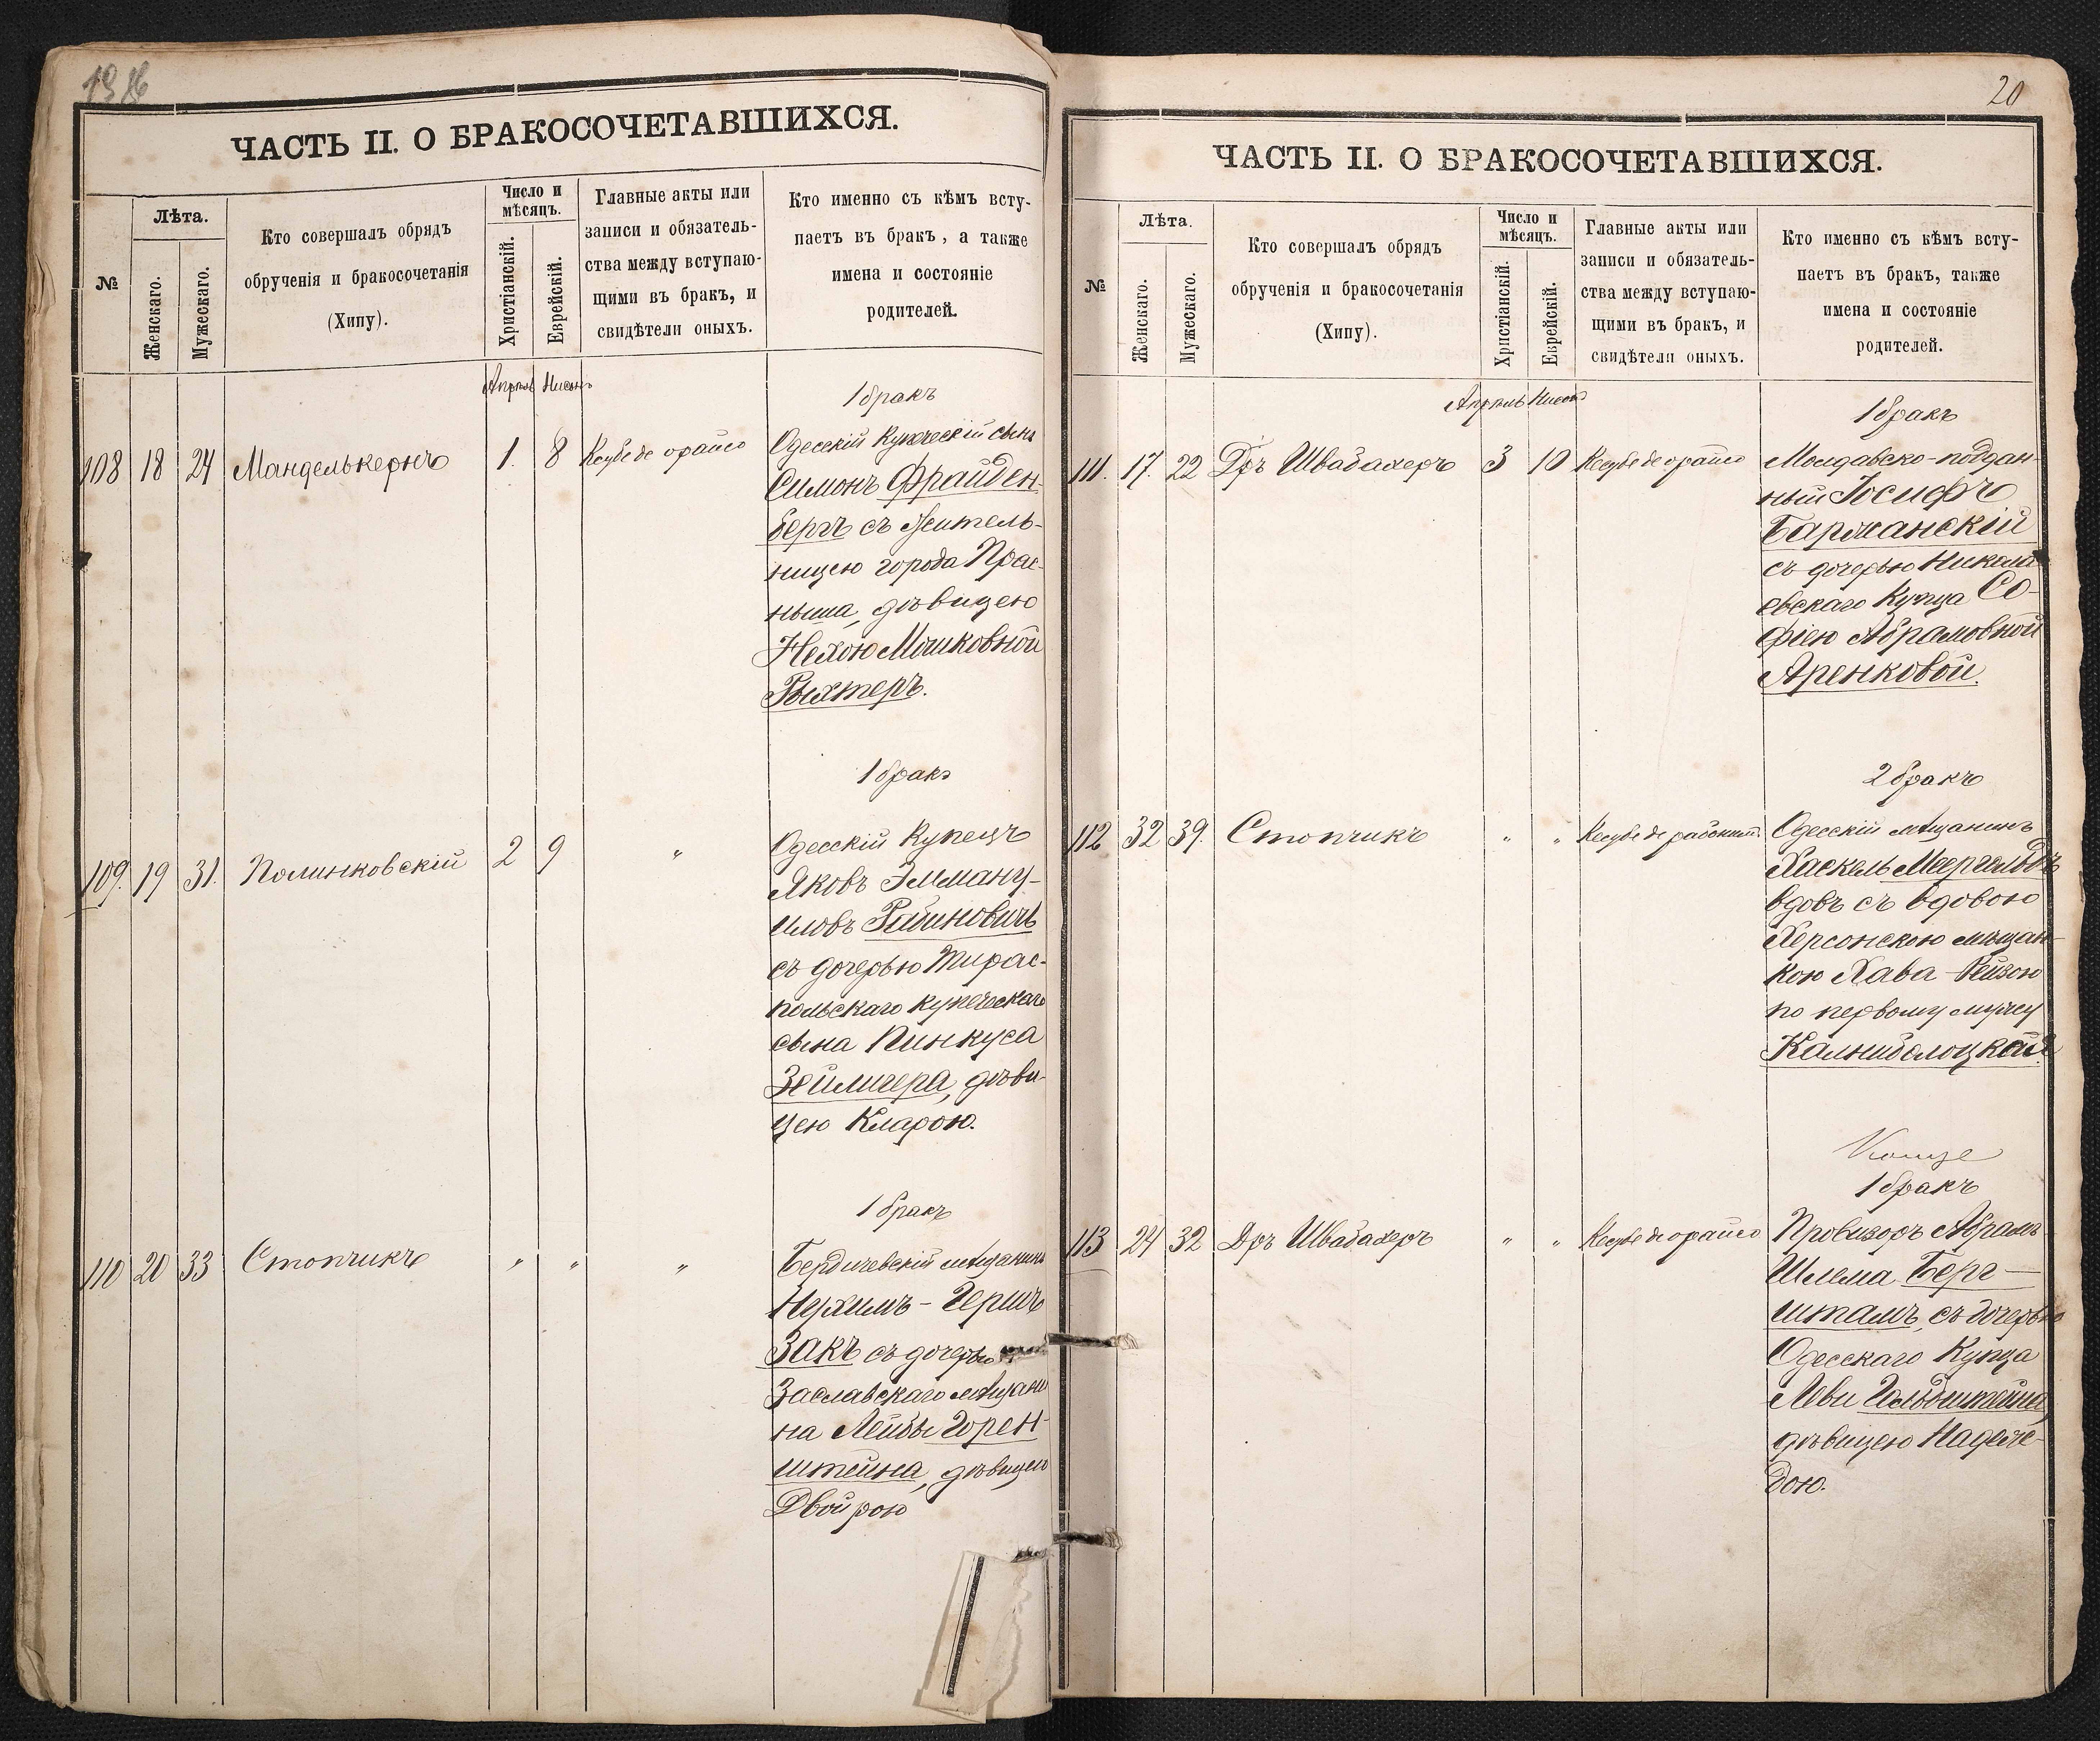 20
ЧАСТЬ II. О БРАКОСОЧЕТАВШИХСЯ.
№
Лѣта.
Женскаго.
Мужескаго.
Кто совершалъ обрядъ
обрученія и бракосочетанія
(Хипу).
Число и
мѣсяцъ.
Христіанскій.
Еврейскій.
Главные акты или
записи и обязатель-
ства между вступаю-
щими въ бракъ, и
свидѣтели оныхъ.
Кто именно съ кѣмъ всту-
паетъ въ бракъ, а также
имена и состояніе
родителей.
Апрѣль Нисонъ
1 бракъ
108 18 24 Манделькернъ 1. 8 Кесубе де орайсо
Одесскій Купеческій сынъ
Симонъ Фрайден-
бергъ съ жительь-
ницею города Прас-
ныша, дѣвицею
Нехою Мошковной
Рыхтеръ.
1 бракъ
109. 19 31. Полинковскій 2 9 "
Одесскій Купецъ
Яковъ Эмману-
иловъ Рабиновичъ
съ дочерью Тирас-
польскаго купеческаго
сына Пинкуса
Зейлигера, дѣви-
цею Кларою.
1 бракъ
110 20 33 Стопчикъ " " "
Бердичевскій мѣщанинъ
Нухимъ-Гершъ
Закъ съ дочерью
Заславскаго мѣщани
на Лейбы Горен-
штейна, дѣвицею
Двойрою
ЧАСТЬ II. О БРАКОСОЧЕТАВШИХСЯ.
№
Лѣта.
Женскаго.
Мужескаго.
Кто совершалъ обрядъ
обрученія и бракосочетанія
(Хипу).
Число и
мѣсяцъ.
Христіанскій.
Еврейскій.
Главные акты или
записи и обязатель-
ства между вступаю-
щими въ бракъ, и
свидѣтели оныхъ.
Кто именно съ кѣмъ всту-
паетъ въ бракъ, также
имена и состояніе
родителей.
Апрѣль Нисонъ
1 бракъ
111. 17. 22 Дръ Швабахеръ 3 10 Кесубе де орайсо
Молдавско-поддан-
ный Іосифъ
Баржанскій
съ дочерью Никола-
евскаго Купца Со-
фіею Абрамовной
Аренковой.
2 бракъ
112 32 39. Стопчикъ " " Кесубе де
Одесскій мѣщанинъ
Хаскель
вдовъ съ вдовою
Херсонскою мѣщан-
кою Хава-Рейзою
по первому мужу
1 бракъ
113 24 32 Дръ Швабахеръ " " Кесубе де орайсо
Провизоръ Абрамъ
Шлема Берг-
штамъ, съ дочерью
Одесскаго Купца
Леви Гольдштейна,
дѣвицею Надеж-
дою.